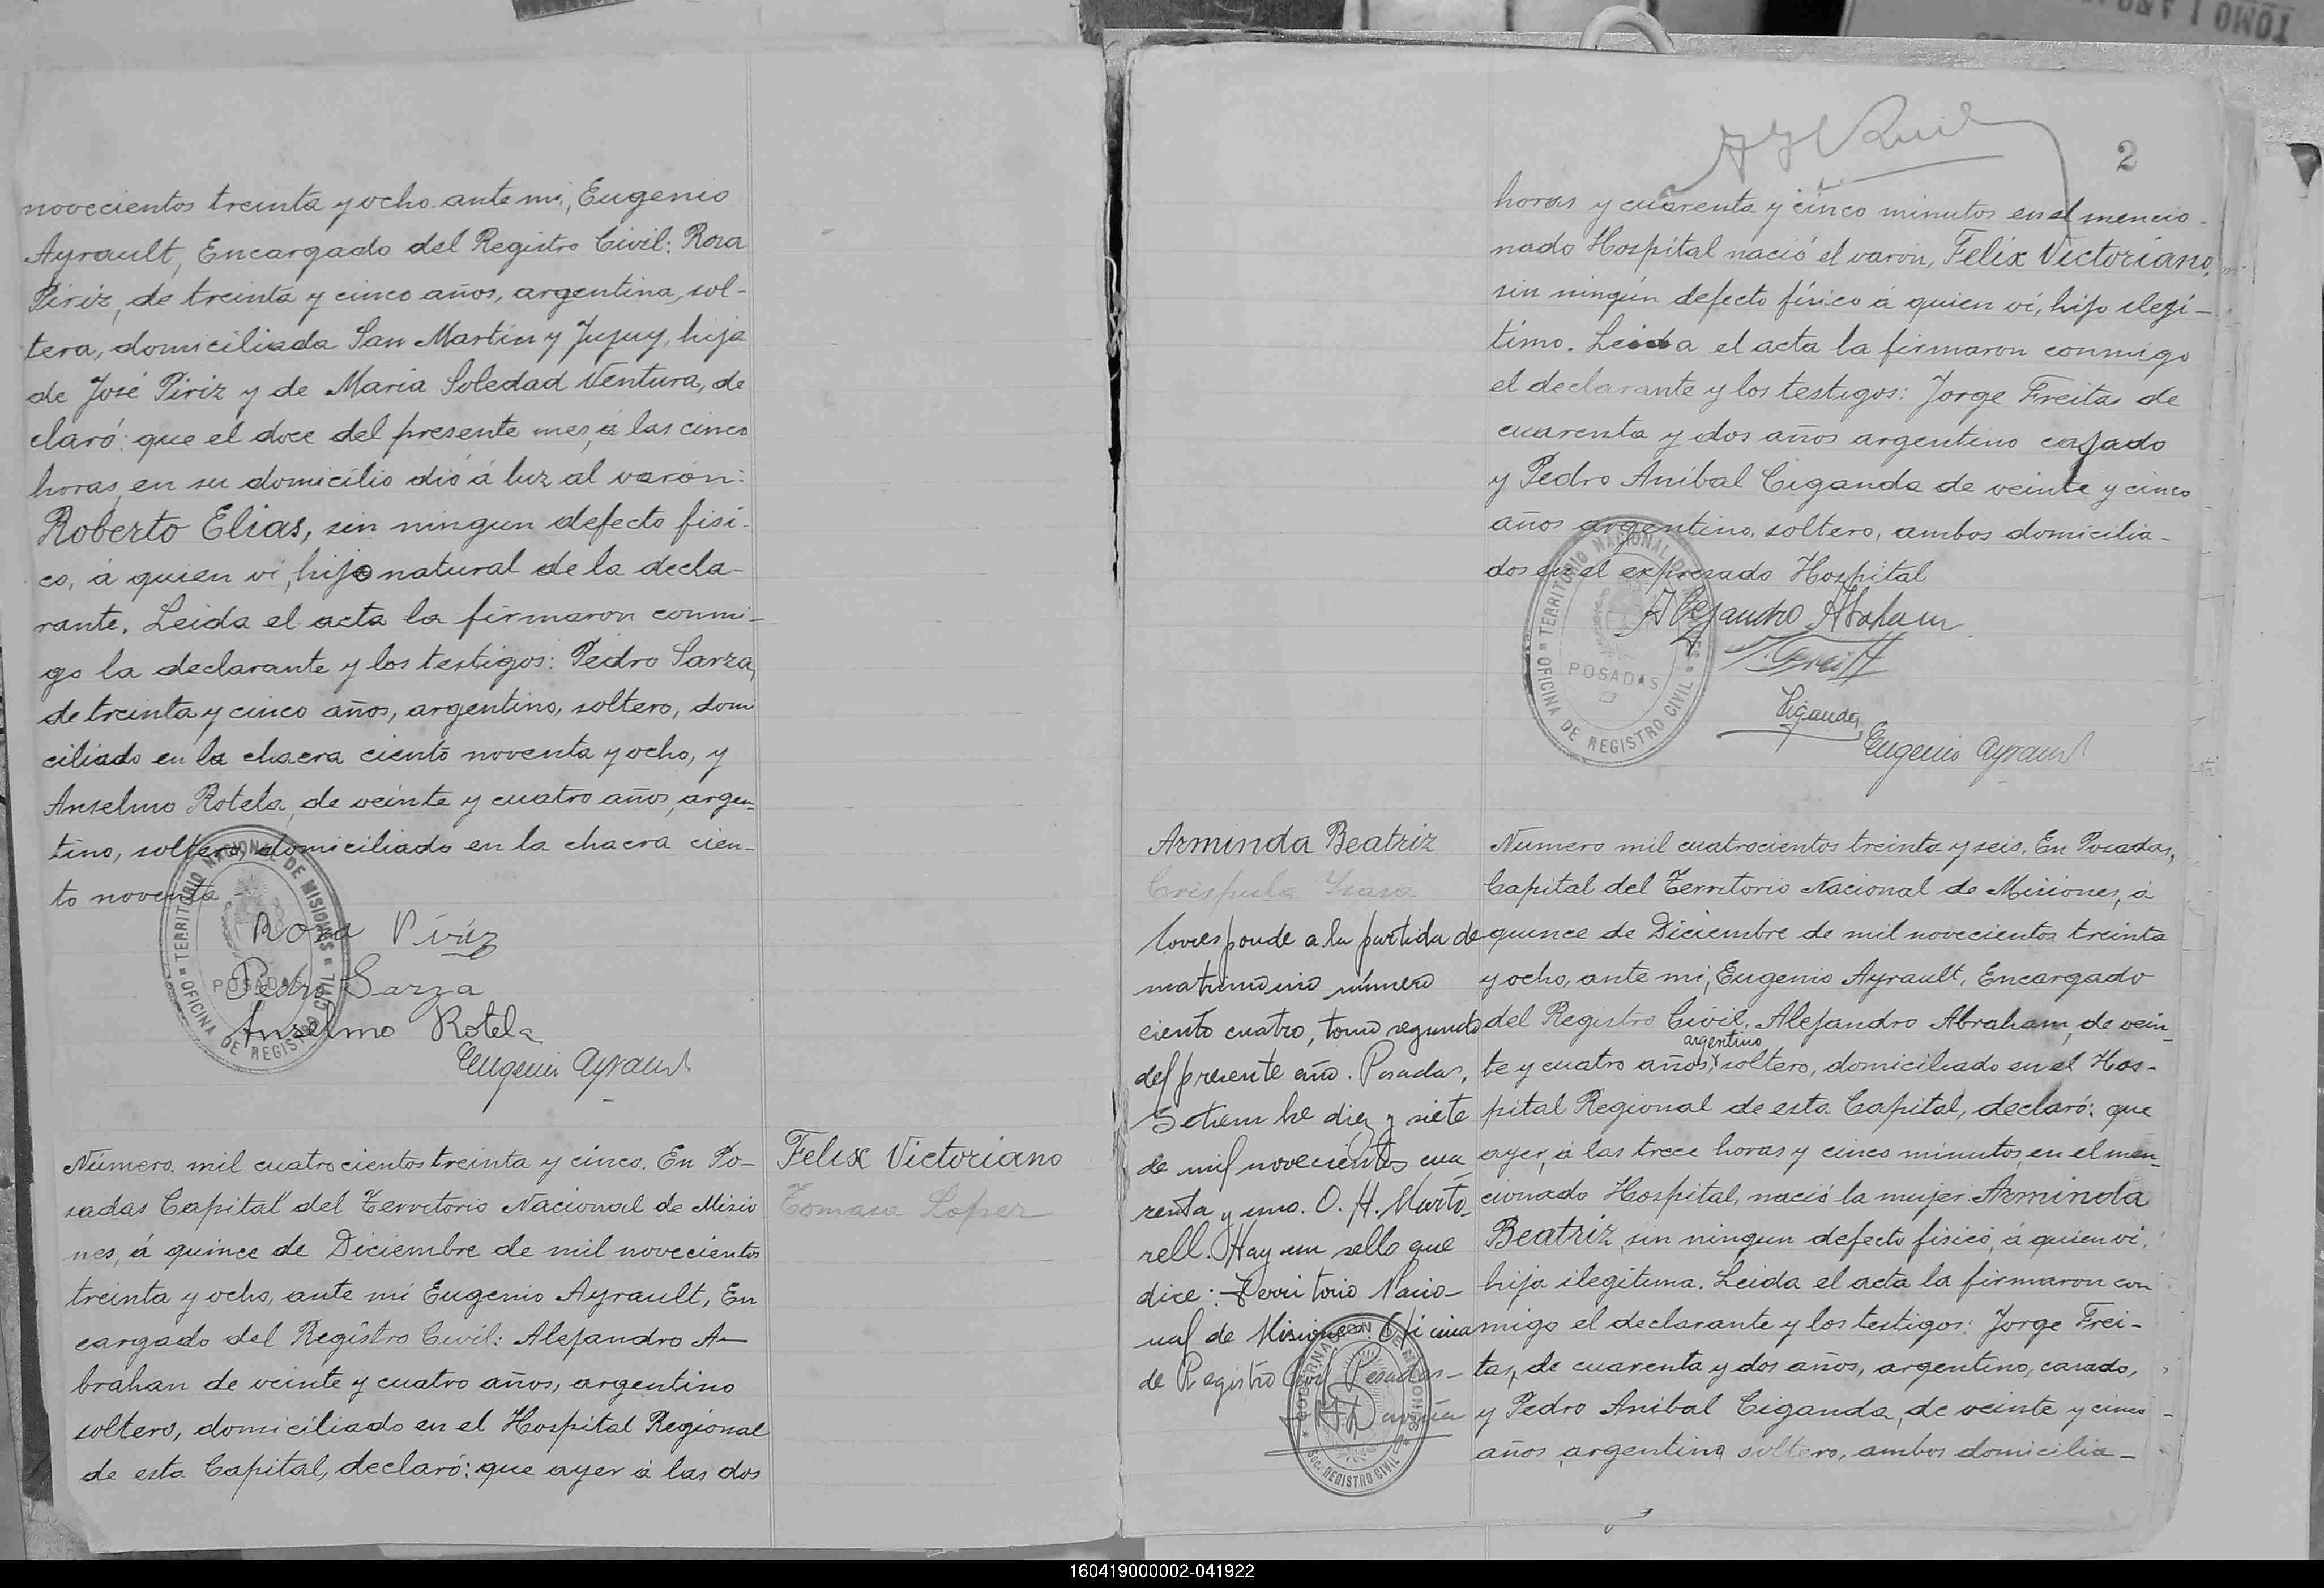 novecientos treinta y ocho ante mi, Eugenio
Ayrault, Encargado del Registro Civil: Rosa
Piriz, de treinta y cinco años, argentina, sol-
tera, domiciliada San Martin y Jujuy, hija
de José Piriz y de Maria Soledad Ventura, de
claró: que el doce del presente mes, á las cinco
horas, en su domicilio dió á luz al varón:
Roberto Elias, sin ningun defecto fisi-
co, á quien vi, hijo natural de la decla-
rante. Leida el acta la firmaron conmi-
go la declarante y los testigos: Pedro Sarza,
de treinta y cinco años, argentino, soltero, domi
ciliado en la chacra ciento noventa y ocho, y
Anselmo Rotela, de veinte y cuatro años, argen-
tino, soltero, domiciliado en la chacra cien-
to noventa
Rosa Piriz
Pedro Sarza
Anselmo Rotela
Eugenio Ayrault
TERRITORIO NACIONAL DE MISIONES
POSADAS
OFICINA DE REGISTRO CIVIL
Número mil cuatrocientos treinta y cinco. En Po-
sadas Capital del Territorio Nacional de Misio
nes, á quince de Diciembre de mil novecientos
treinta y ocho, ante mi Eugenio Ayrault, En
cargado del Registro Civil: Alejandro A-
brahan de veinte y cuatro años, argentino
soltero, domiciliado en el Hospital Regional
de esta Capital, declaró: que ayer á las dos
Felix Victoriano
Tomasa Lopez
2
horas y cuarenta y cinco minutos en el mencio-
nado Hospital nació el varon, Felix Victoriano,
sin ningún defecto físico á quien ví, hijo ilegi-
timo. Leida el acta la firmaron conmigo
el declarante y los testigos: Jorge Freitas de
cuarenta y dos años argentino casado
y Pedro Anibal Ciganda de veinte y cinco
años argentino, soltero, ambos domicilia-
dos en el expresado Hospital
Alejandro Abraham
Ciganda
Eugenio Ayrault
TERRITORIO NACIONAL DE MISIONES
POSADAS
OFICINA DE REGISTRO CIVIL
Arminda Beatriz
Crispula
Corresponde a la partida de
matrimonio número
ciento cuatro, tomo segundo
del presente año. Posadas,
Setiembre diez y siete
de mil novecientos cua
renta y uno. O. H. Marto-
rell. Hay un sello que
dice: Territorio Nacio-
nal de Misiones. Oficina
de Registro Civil Posadas-
GOBERNACION DE MISIONES
REGISTRO CIVIL
Numero mil cuatrocientos treinta y seis. En Posadas,
Capital del Territorio Nacional de Misiones, á
quince de Diciembre de mil novecientos treinta
y ocho, ante mi, Eugenio Ayrault, Encargado
del Registro Civil, Alejandro Abraham, de vein-
argentino
te y cuatro años, soltero, domiciliado en el Hos-
pital Regional de esta Capital, declaró: que
ayer, á las trece horas y cinco minutos, en el men-
cionado Hospital, nació la mujer Arminda
Beatriz, sin ningun defecto fisico, á quien vi,
hija ilegitima. Leida el acta la firmaron con
migo el declarante y los testigos: Jorge Frei-
tas, de cuarenta y dos años, argentino, casado,
y Pedro Anibal Ciganda, de veinte y cinco
años argentino soltero, ambos domicilia-
160419000002-041922